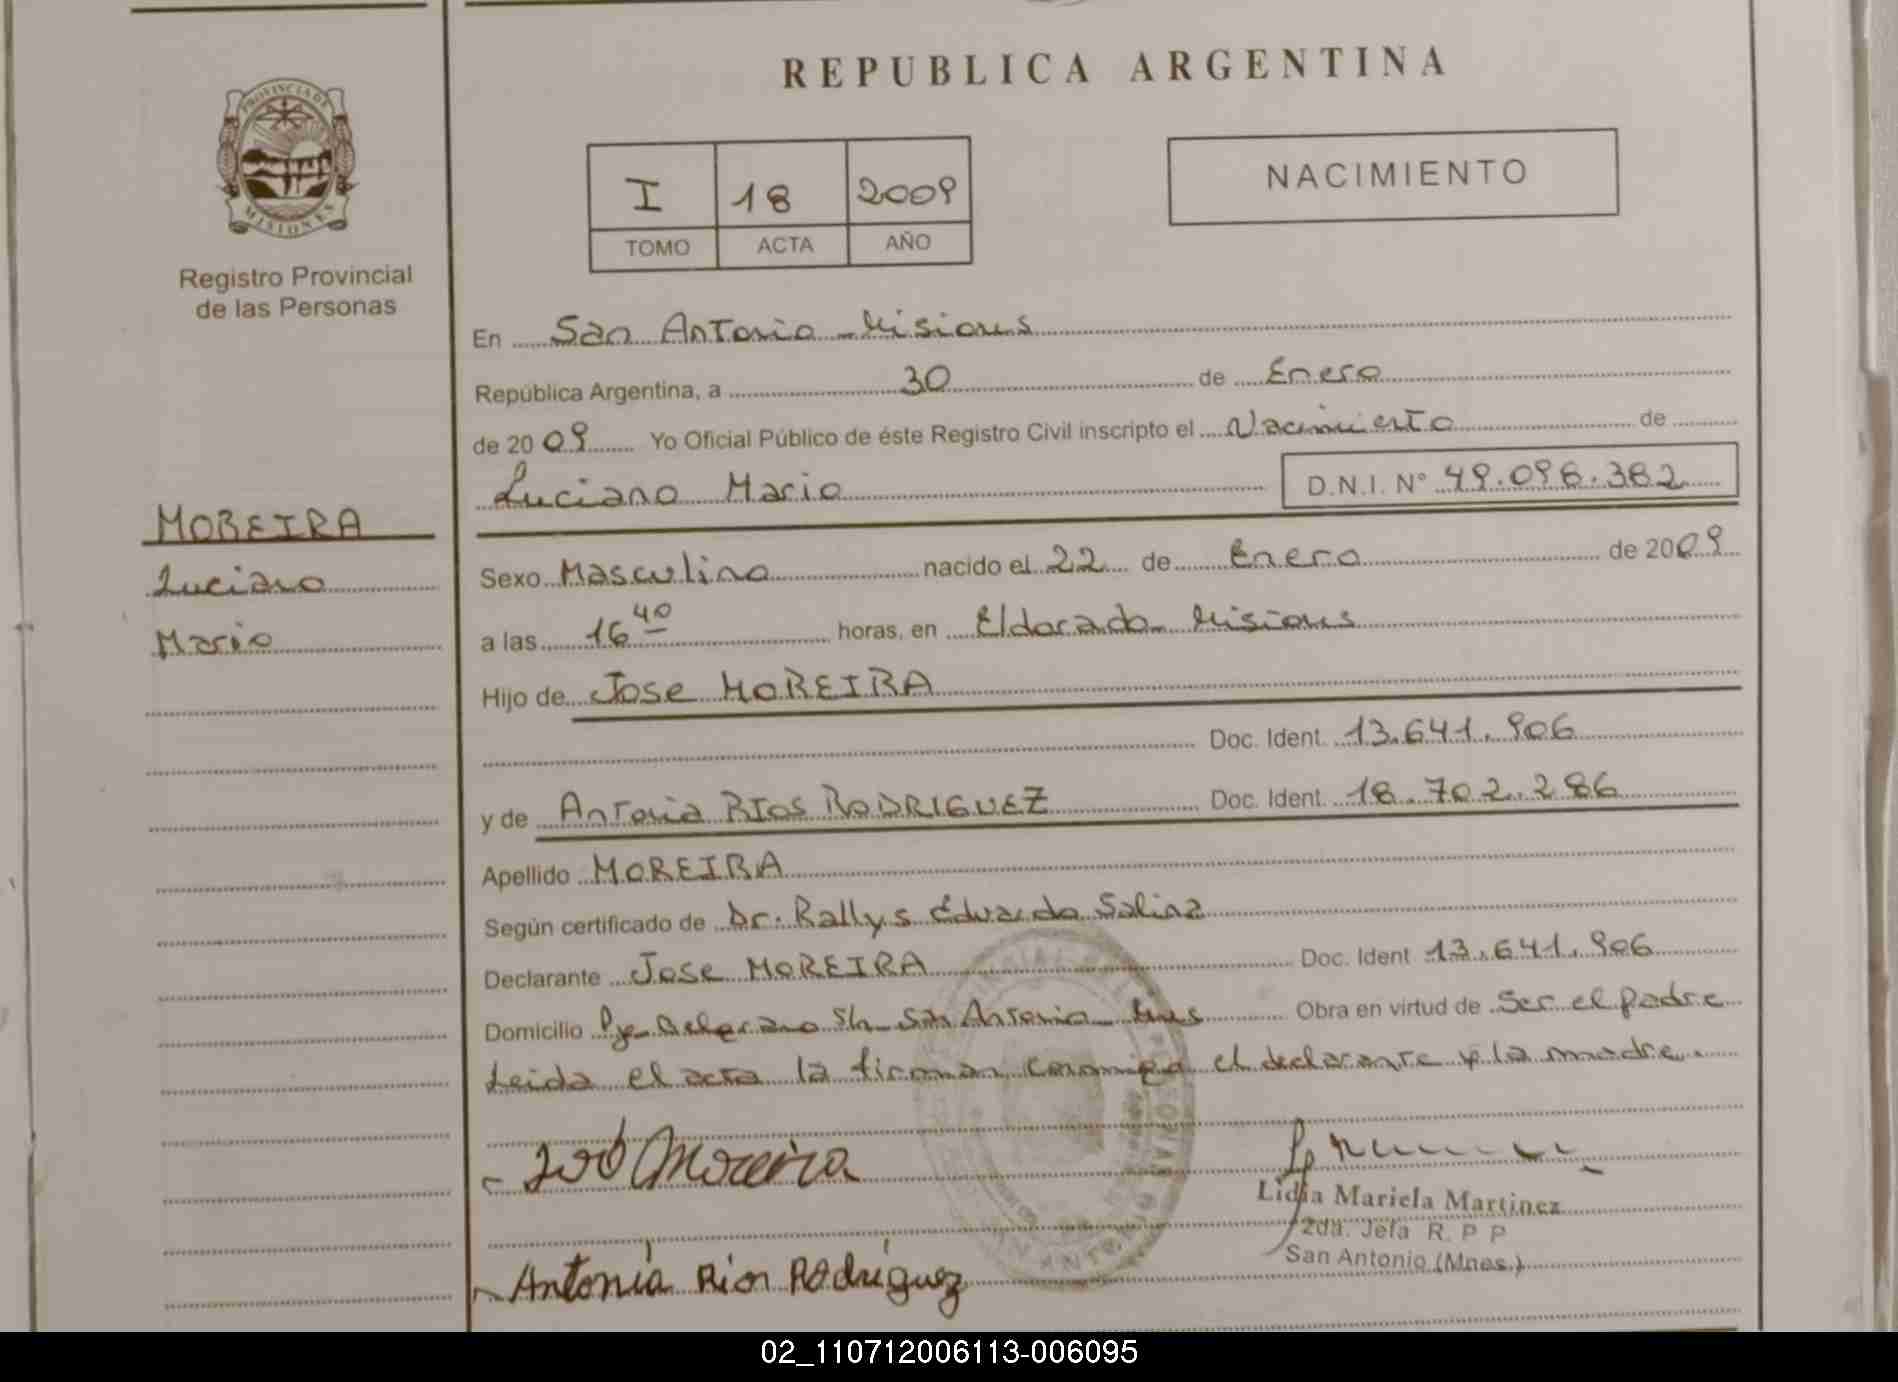 REPUBLICA ARGENTINA
PROVINCIA DE
MISIONES
Registro Provincial
de las Personas
I 18 2009
TOMO ACTA AÑO
NACIMIENTO
En San Antonio - Misiones
República Argentina, a 30 de Enero
de 2009 Yo Oficial Público de éste Registro Civil inscripto el Nacimiento de
Luciano Mario D.N.I. N° 49.096.382
MOREIRA
Luciano
Mario
Sexo Masculino nacido el 22 de Enero de 2009
a las 16 40 horas, en Eldorado Misiones
Hijo de Jose MOREIRA
Doc. Ident. 13.641.906
y de Antonia RIOS RODRIGUEZ Doc. Ident. 18.702.286
Apellido MOREIRA
Según certificado de Dr. Rallys Eduardo Salina
Declarante Jose MOREIRA Doc. Ident 13.641.906
Domicilio San Antonio Obra en virtud de Ser el padre
Leida el acta la firman conmigo el declarante y la madre.
José Moreira
Lidia Mariela Martinez
2da. Jefa R. P P
San Antonio (Mnes.)
Antonia Rios Rodriguez
02_110712006113-006095